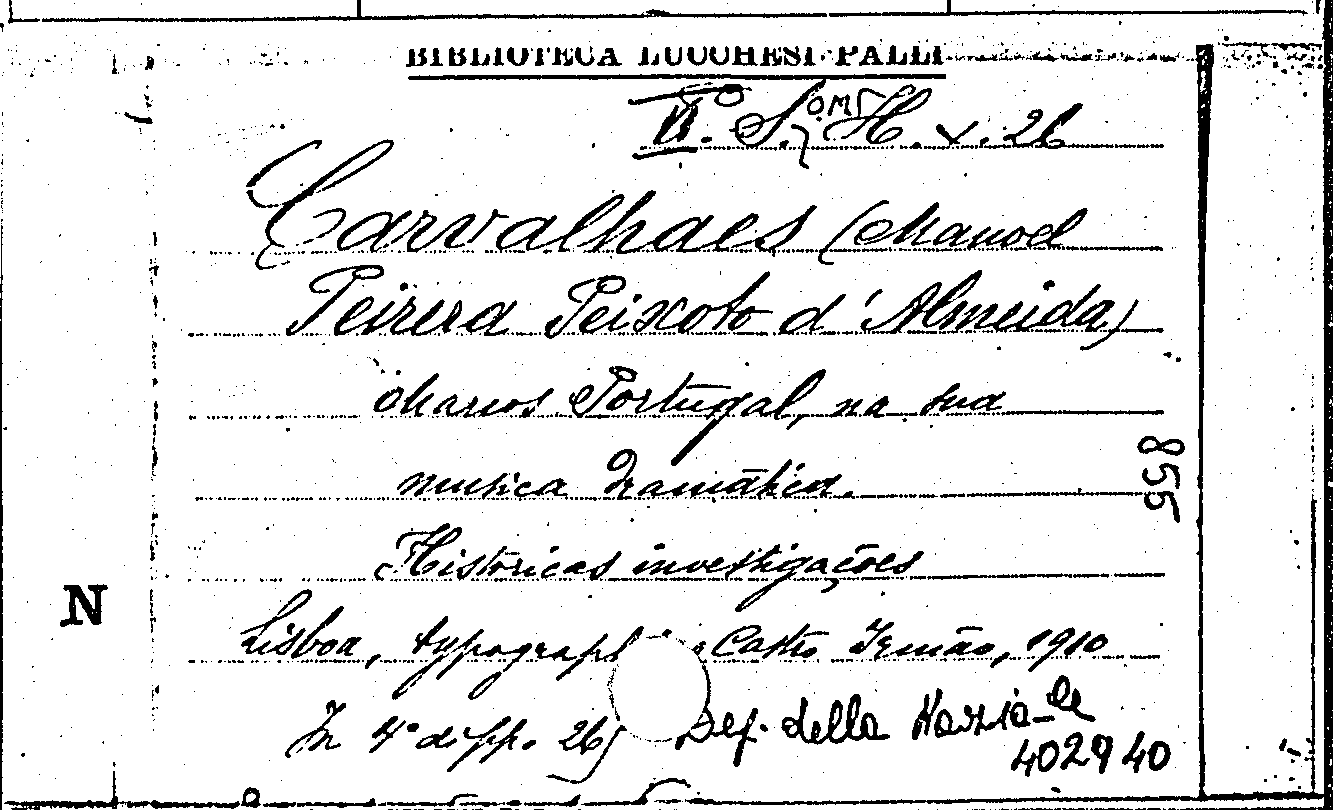 BIBLIOTECA LUCCHESI-PALLI
VIº. S. H. X. 26
Carvalhaes (Manoel
Peirera Peixoto d'Almeida)
Marcos Portugal, na sua
musica dramática.
Historicas investigações
855
N
Lisboa, typograph Castro Irmão, 1910
In 4º di pp. 26 Dep. della Nazia-le
402940